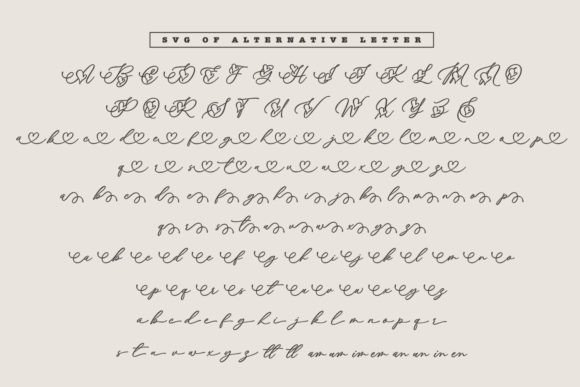 SVG OF ALTERNATIVE LETTER
A B C D E F G H I J K L M N O
P Q R S T U V W X Y Z
a b c d e f g h i j k l m n o p
q r s t u v w x y z
a b c d e f g h i j k l m n o p
q r s t u v w x y z
a b c d e f g h i j k l m n o
p q r s t u v w x y z
a b c d e f g h i j k l m n o p q r
s t u v w x y z tt tl am um im em an un in en